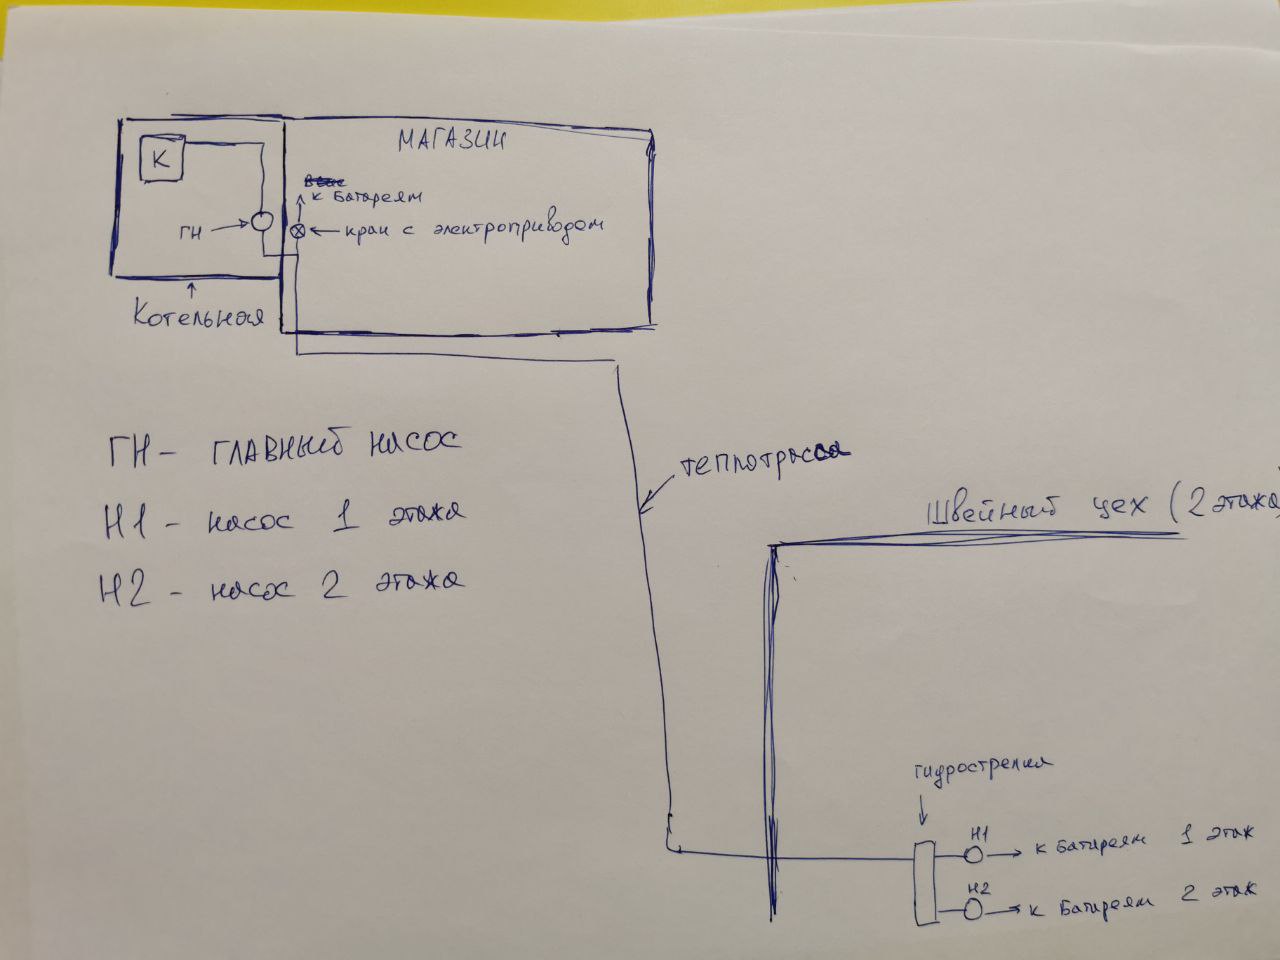 МАГАЗИН
К
к батареям
ГН
кран с электроприводом
Котельная
ГН - ГЛАВНЫЙ насос
Н1 - насос 1 этажа
Н2 - насос 2 этажа
теплотрасса
Швейный цех (2 этажа)
гидрострелка
Н1
к батареям 1 этаж
Н2
к батареям 2 этаж